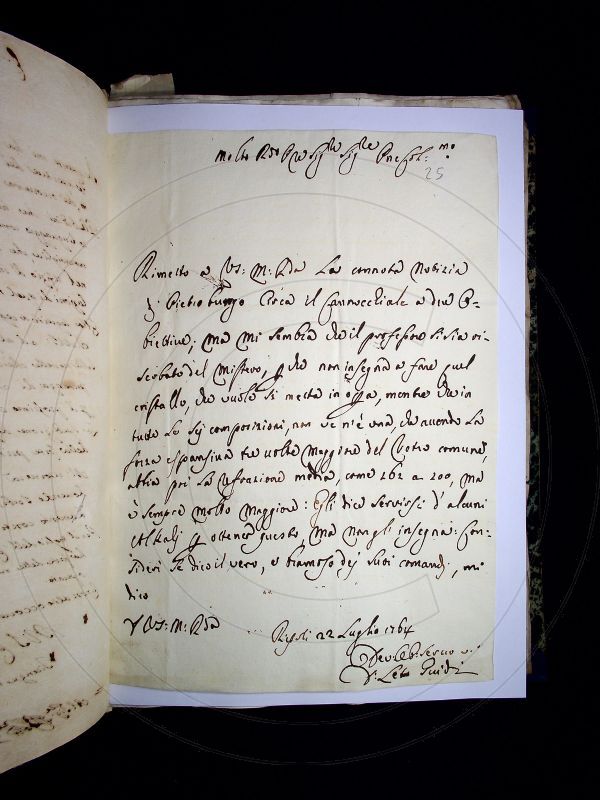 Molto Rdo Pre Sigr Sigre Pne Col:mo
25
Rimetto a VS: M: Rda La connota Notizia
Pietro burgo Circa il Cannocchiale a due O-
biettivi; Ma Mi sembra che il professore si sia ri-
serbato del Mistero; che non insegna a fare quel
cristallo, che vuole si metta in, mentre che in
tutte Le sei composizioni, non ve n'è una, che avendo La
forza espansiva tre volte Maggiore del Vetro comune,
abbia poi La refrazione media, come 162 a 200, Ma
è sempre molto Maggiore: Egli dice servirsi d'alcuni
Alkalj ottener questo, Ma non gli insegna: Con-
sideri Se dico il vero, e bramoso dej Suoi comandj, mi
dico
VS: M: Rda
Rigoli 22 Luglio 1764
Dev: Obb: Servo
Guidi